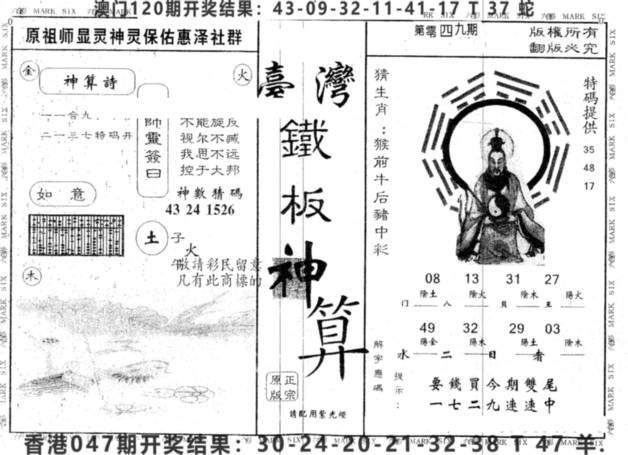 澳门120期开奖结果：43-09-32-11-41-17 T 37 蛇
原祖师显灵神灵保佑惠泽社群
第零四九期
版權所有
翻版必究
金
神算詩
火
一一合九
二一三七特码开
帥靈簽曰
不能旋反
視尔不臧
我思不远
控于大邦
神數猜碼
43 24 1526
如意
土
子
火
午敬請彩民留意
凡有此商標的
木
臺灣
鐵板神算
正宗
原版
請配用紫光燈
猜生肖：猴前牛后豬中彩
特碼提供
35
48
17
08 13 31 27
陰土 陰火 陰木 陽火
門 八 貝 王
49 32 29 03
陽金 陽木 陽土 陰木
水 二 日 者
解字應碼
提示：
要錢買今期雙尾
一二七九連連中
香港047期开奖结果：30-24-20-21-32-38 T 47 羊.
MARK SIX